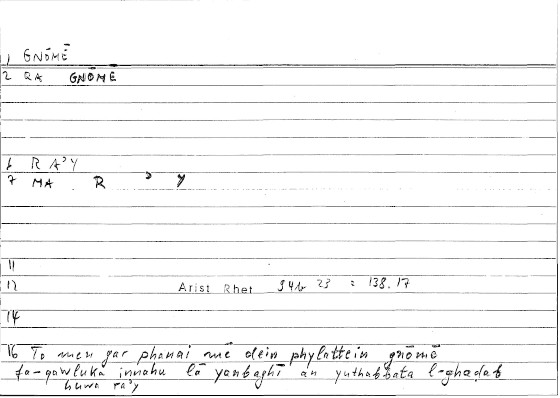 1 GNŌMĒ
2 RA GNŌMĒ
6 RAʾY
7 MA R ʾ Y
11
12 Arist Rhet 94b 23 = 138.17
14
16 To men gar phanai mē dein phylattein gnōmē
fa-qawluka innahu lā yanbaghī an yuthabbata l-ghaḍab
huwa raʾy